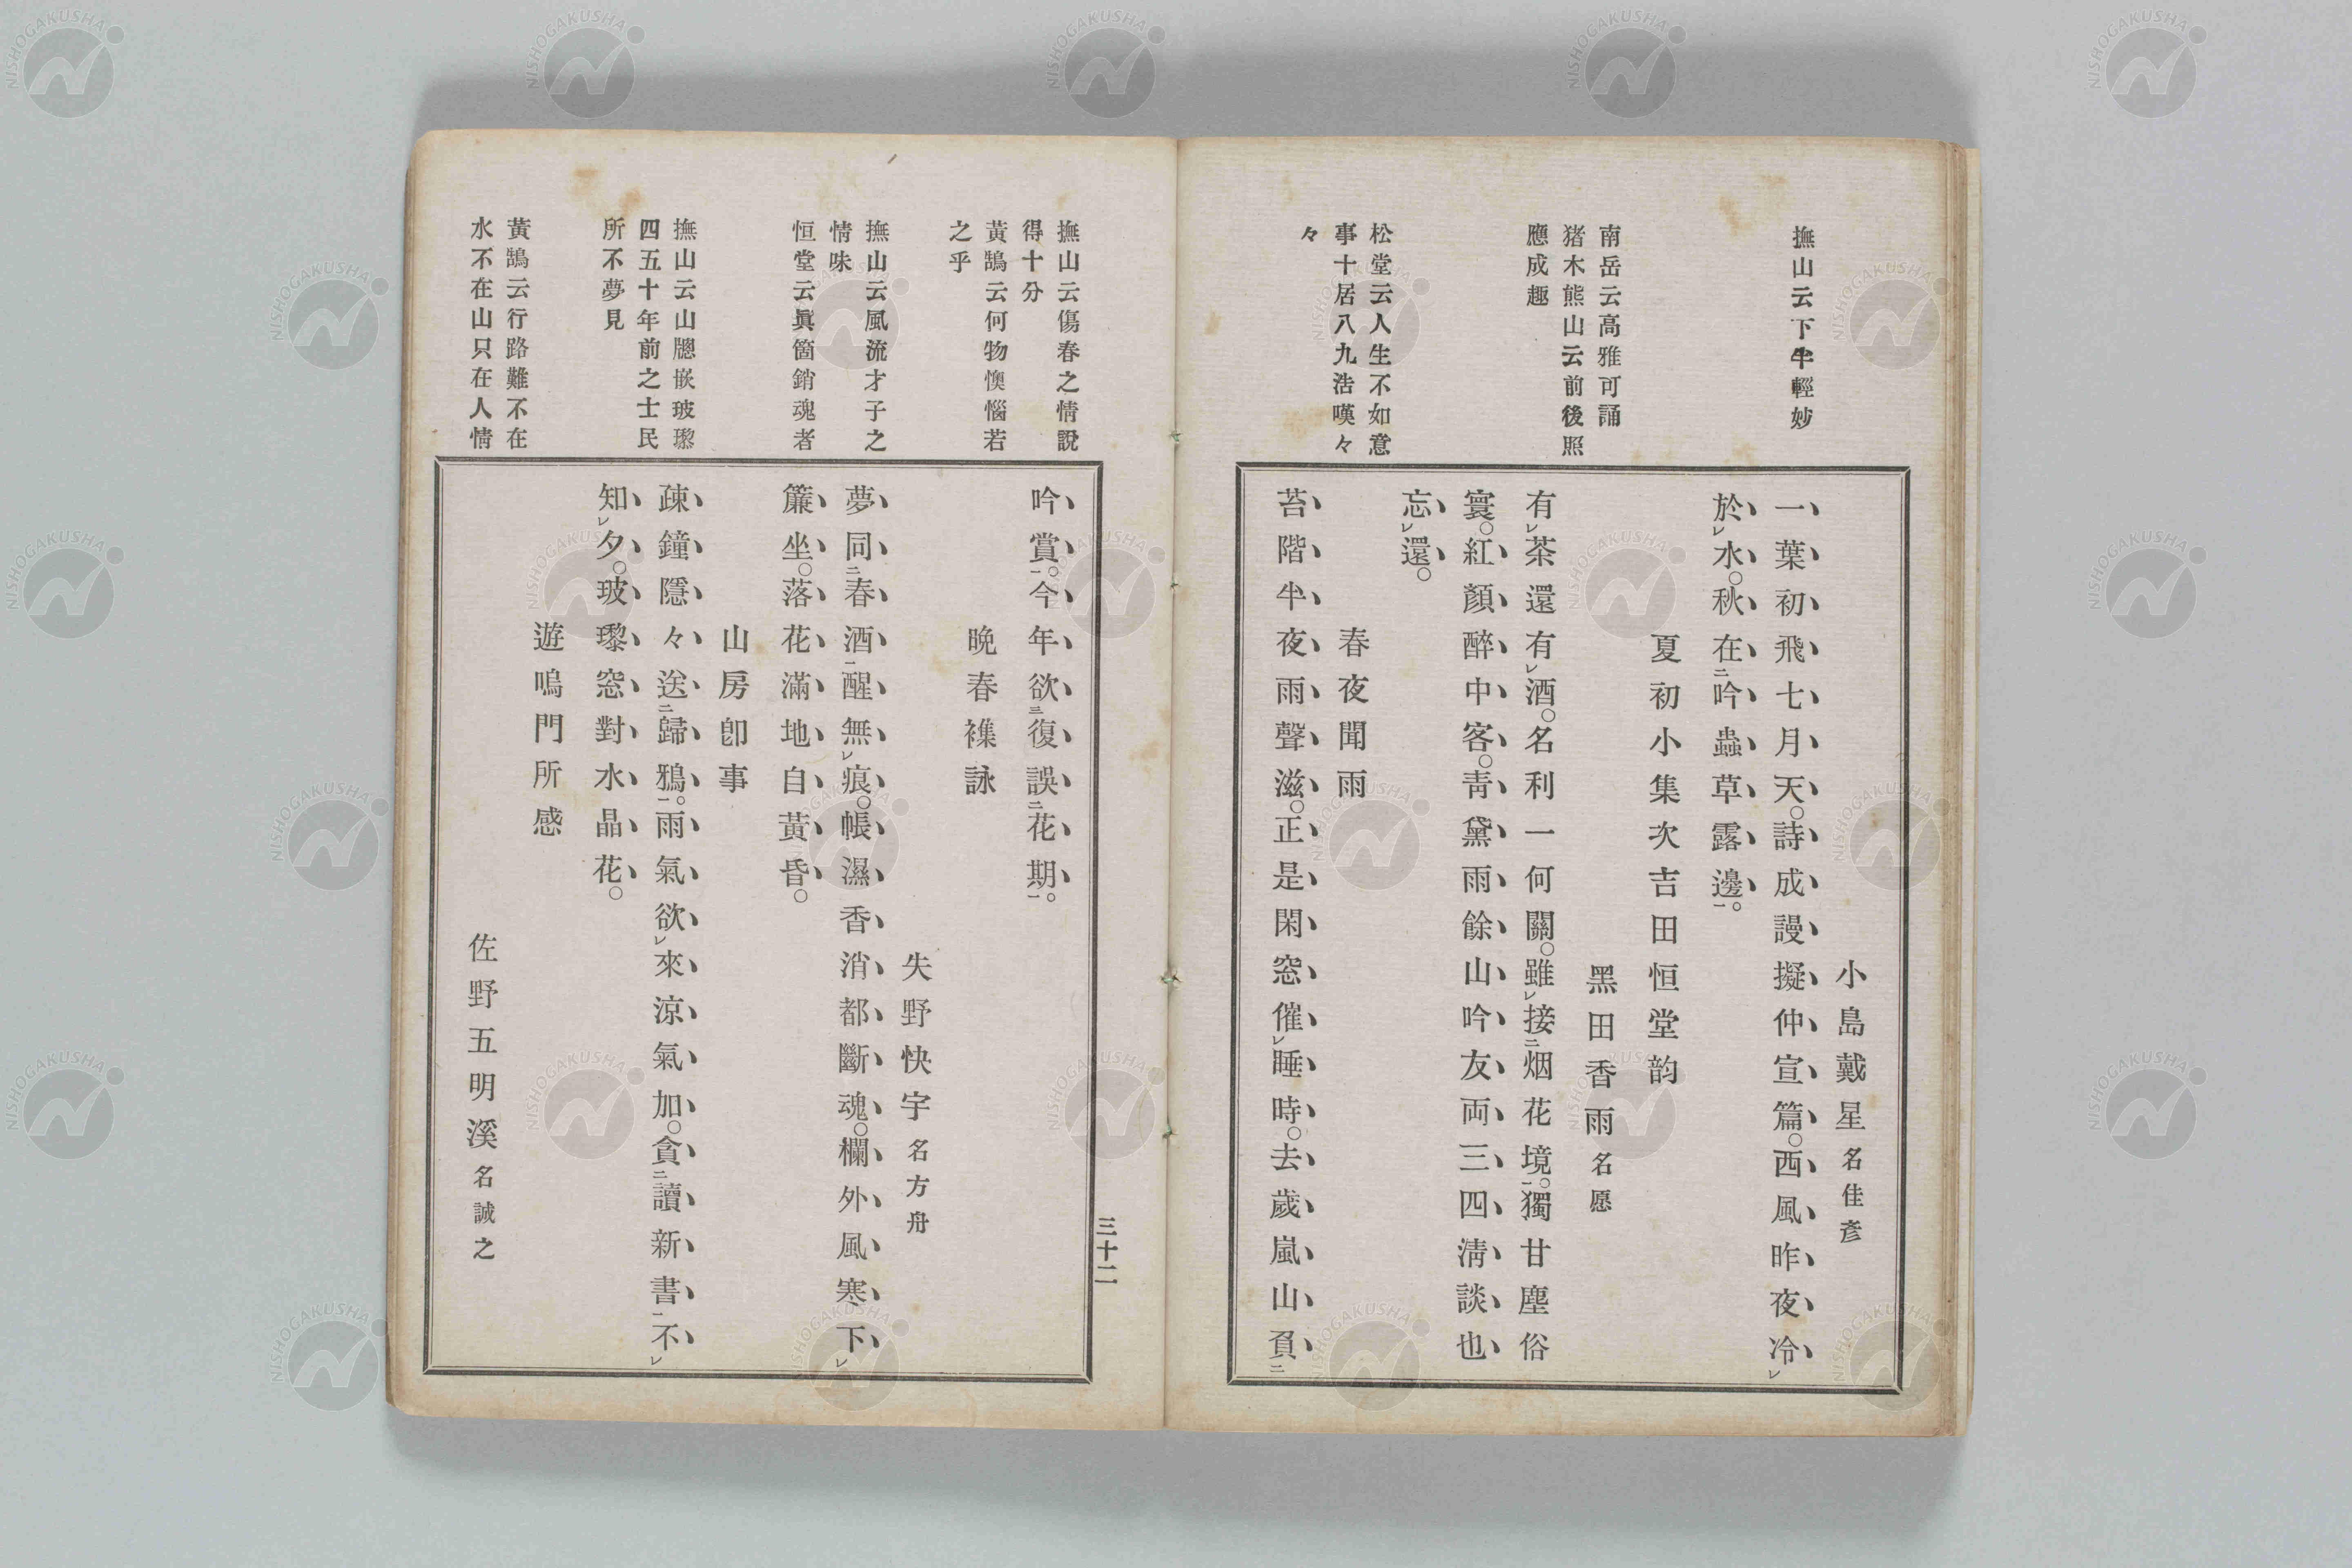 撫山云下半輕妙
南岳云高雅可誦
猪木熊山云前後照
應成趣
松堂云人生不如意
事十居八九浩嘆々
々
小島戴星名佳彥
一葉初飛七月天。詩成謾擬仲宣篇。西風昨夜冷レ
於レ水。秋在二吟蟲草露邊一。
夏初小集次吉田恒堂韵
黑田香雨名愿
有レ茶還有レ酒。名利一何關。雖レ接二烟花境一。獨甘塵俗
寰。紅顏醉中客。靑黛雨餘山吟友両三四淸談也
忘レ還。
春夜聞雨
苔階半夜雨聲滋。正是閑窓催レ睡時。去歲嵐山負二
撫山云傷春之情說
得十分
黃鵠云何物懊惱若
之乎
撫山云風流才子之
情味
恒堂云眞箇銷魂者
撫山云山牕嵌玻瓈
四五十年前之士民
所不夢見
黃鵠云行路難不在
水不在山只在人情
吟賞一。今年欲三復誤二花期一。
晩春襍詠
失野快宇名方舟
夢同二春酒一醒無レ痕。帳濕香消都斷魂。欄外風寒下レ
簾坐。落花滿地自黃昏。
山房卽事
疎鐘隱々送二歸鴉一。雨氣欲レ來涼氣加。貪二讀新書一不レ
知レ夕。玻瓈窓對水晶花。
遊鳴門所感
佐野五明溪名誠之
三十二
NISHOGAKUSHA